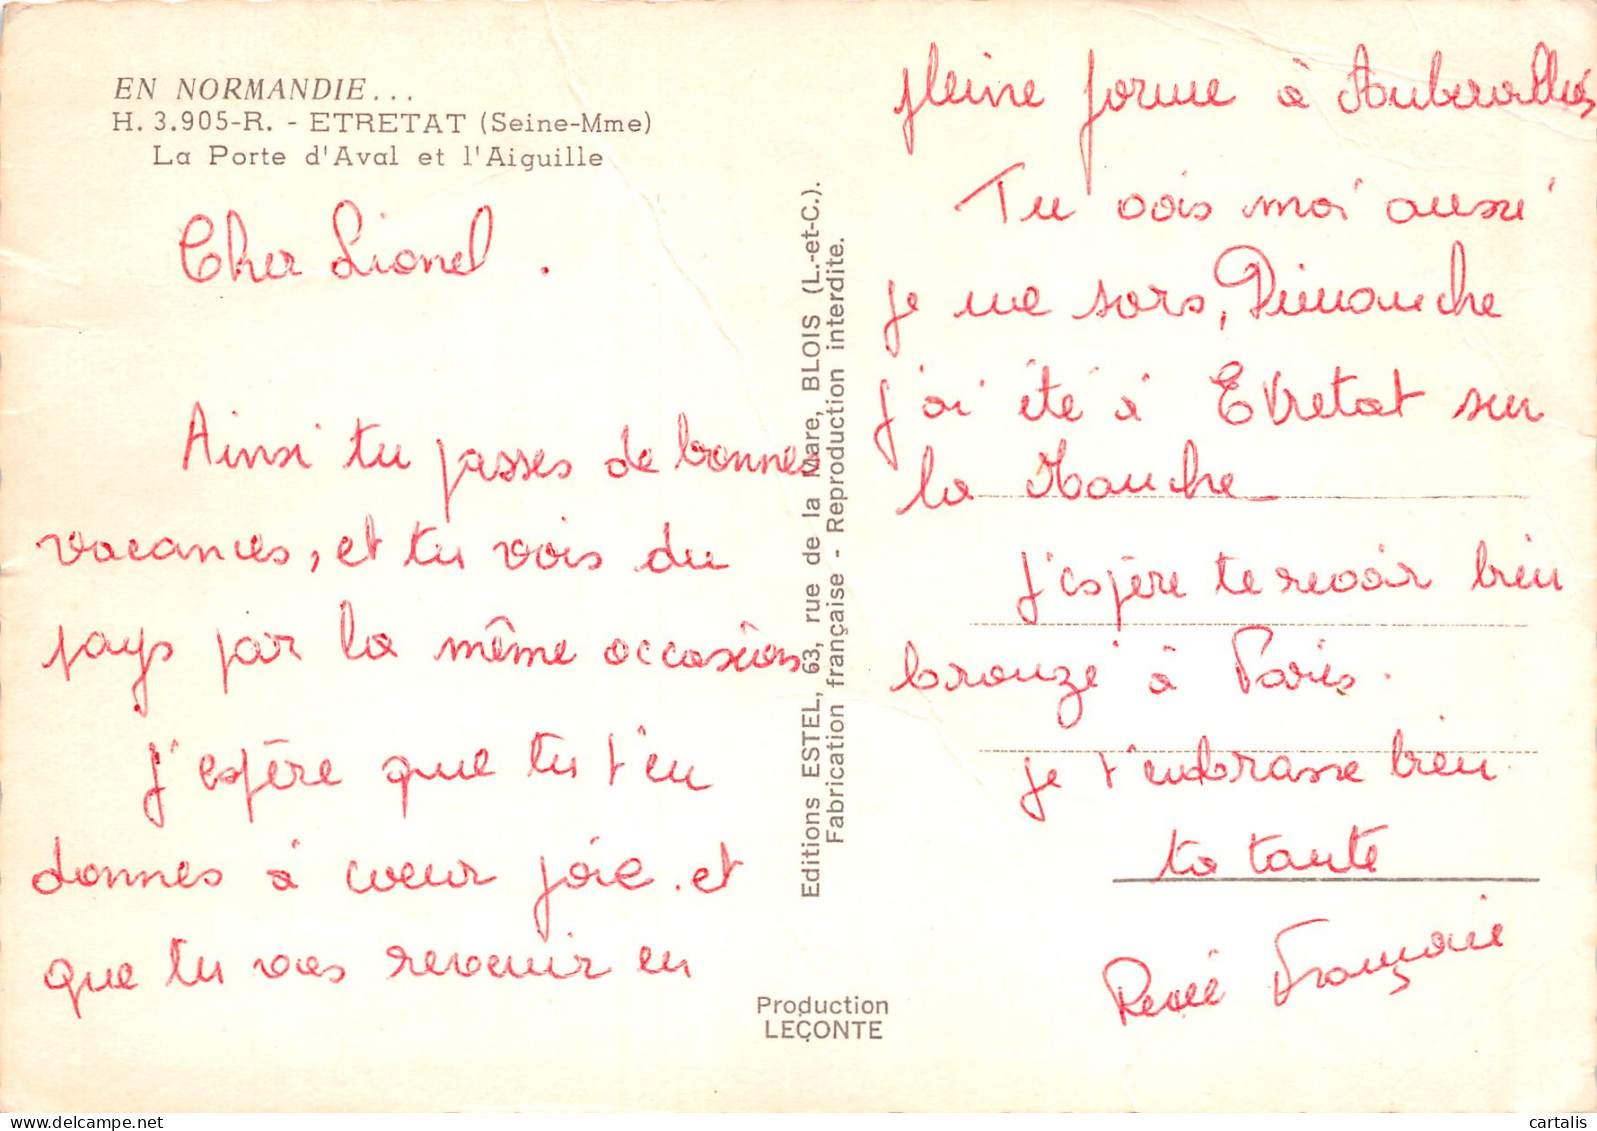 EN NORMANDIE...
H. 3.905-R. - ETRETAT (Seine-Mme)
La Porte d'Aval et l'Aiguille
Cher Lionel.
Ainsi tu passes de bonnes
vacances, et tu vois du
pays par la même occasion
J'espère que tu t'en
donnes à coeur joie. et
que tu vas revenir en
Editions ESTEL, 63, rue de la Mare, BLOIS (L.-et-C.).
Fabrication française - Reproduction interdite.
Production
LEÇONTE
pleine forme à Aubervilliers
Tu vois moi aussi
je me sors, Dimanche
j'ai été à Etretat sur
la Manche
J'espère te revoir bien
bronzé à Paris.
je t'embrasse bien
ta tante
Renée Françoise
cartalis